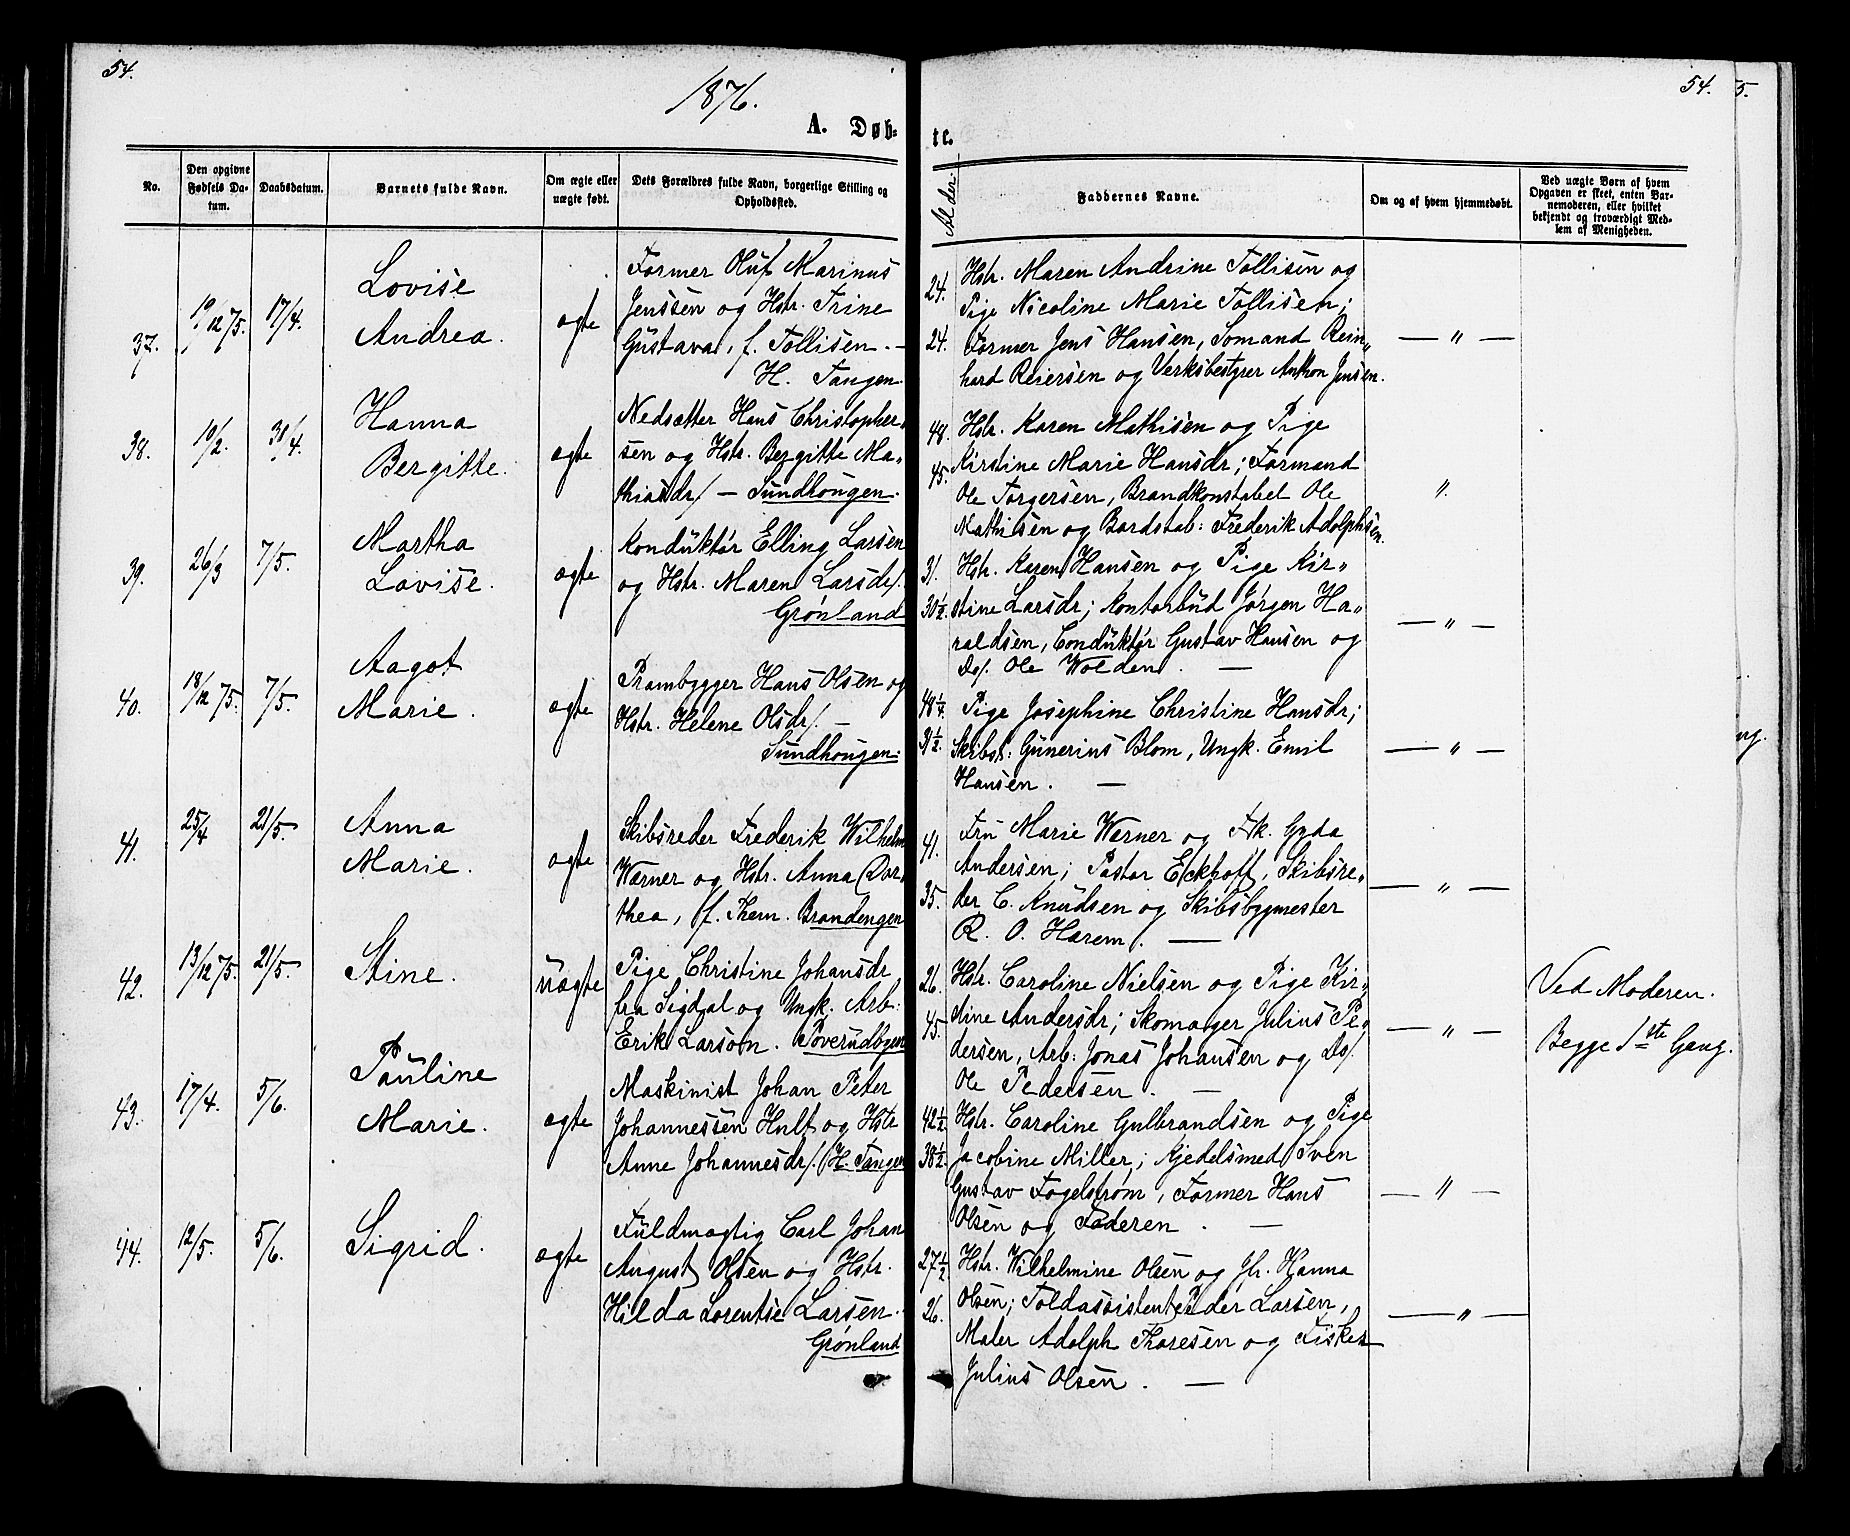 54.
1876.
A. Døb-
No.
Den opgivne Fødsels Da-tum.
Daabsdatum.
Barnets fulde Navn.
Om ægte eller uægte født.
Dets Forældres fulde Navn, borgerlige Stilling og Opholdssted.
37.
19/12 75.
17/4.
Lovise
Andrea.
ægte
Former Oluf Marinus
Jenssen og Hstr. Trine
Gustava, f. Tollisen. —
H. Tangen.
38.
10/2.
30/4.
Hanna
Bergitte.
ægte
Nedsætter Hans Christopher-
sen og Hstr. Bergitte Ma-
thiasdr/ — Sundhougen.
39.
26/3
7/5.
Martha
Lovise.
ægte
Konduktør Elling Larsen
og Hstr. Maren Larsdr/.
Grønland
40.
18/12 75.
7/5.
Aagot
Marie.
ægte
Prambygger Hans Olsen og
Hstr. Helene Olsdr/. —
Sundhougen.
41.
25/4
21/5.
Anna
Marie.
ægte
Skibsreder Frederik Wilhelm
Werner og Hstr. Anna Dor-
thea, f. Them. Brandengen
42.
13/12 75.
21/5.
Stine.
uægte
Pige Christine Johansdr
fra Sigdal og Ungk. Arb:
Erik Larson. Poverudbyen
43.
17/4.
5/6.
Pauline
Marie.
ægte
Maskinist Johan Peter
Johannessen Hult og Hstr
Anne Johannesdr/. H. Tangen
44.
12/5.
5/6.
Sigrid.
ægte
Fuldmægtig Carl Johan
August Olsen og Hstr.
Hilda Lorentse Larsen.
Grønland
54.
5.
te.
Alder
Faddernes Navne.
Om og af hvem hjemmedøbt.
Ved uægte Børn af hvem
Opgaven er skeet, enten Bar-
nemoderen, eller hvilket
bekjendt og troværdigt Med-
lem af Menigheden.
24.
24.
Hstr. Maren Andrine Tollisen og
Pige Nicoline Marie Tollisen;
Former Jens Hansen, Sømand Rein-
hard Reiersen og Verksbestyrer Anthon Jensen.
— " —
48.
45.
Hstr. Karen Mathisen og Pige
Kirstine Marie Hansdr; Formand
Ole Torgersen, Brandkonstabel Ole
Mathisen og Bordstab: Frederik Adolphsen.
".
31.
30½.
Hstr. Karen Hansen og Pige Kir-
stine Larsdr; Kontorbud Jørgen Ha-
raldsen, Conduktør Gustav Hansen og
Do/. Ole Wolden. —
— " —
48¼.
31½.
Pige Josephine Christine Hansdr;
Skibst: Gunerius Blom, Ungk. Emil
Hansen. —
— " —
ng.
41.
35.
Fru Marie Werner og Frk. Gyda
Andersen; Pastor Eckhoff, Skibsre-
der C. Knudsen og Skibsbygmester
R. O. Harem. —
— " —
26.
45.
Hstr. Caroline Nielsen og Pige Kir-
stine Andersdr; Skomager Julius Pe-
dersen, Arb: Jonas Johansen og Do/.
Ole Pedersen. —
— " —
Ved Moderen.
Begge 1ste Gang.
42½.
38½.
Hstr. Caroline Gulbrandsen og Pige
Jacobine Miller; Kjedelsmed Sven
Gustav Fogelstrøm, Former Hans
Olsen og Faderen. —
— " —
27½
26.
Hstr. Wilhelmine Olsen og Jfr. Hanna
Olsen; Toldassistent Peder Larsen,
Maler Adolph Thoresen og Fisker
Julius Olsen. —
— " —